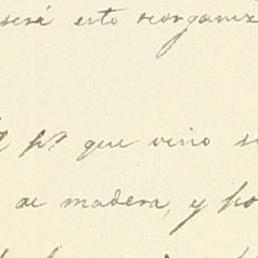 será esto reorganiz
pr que vino
de madera, y po